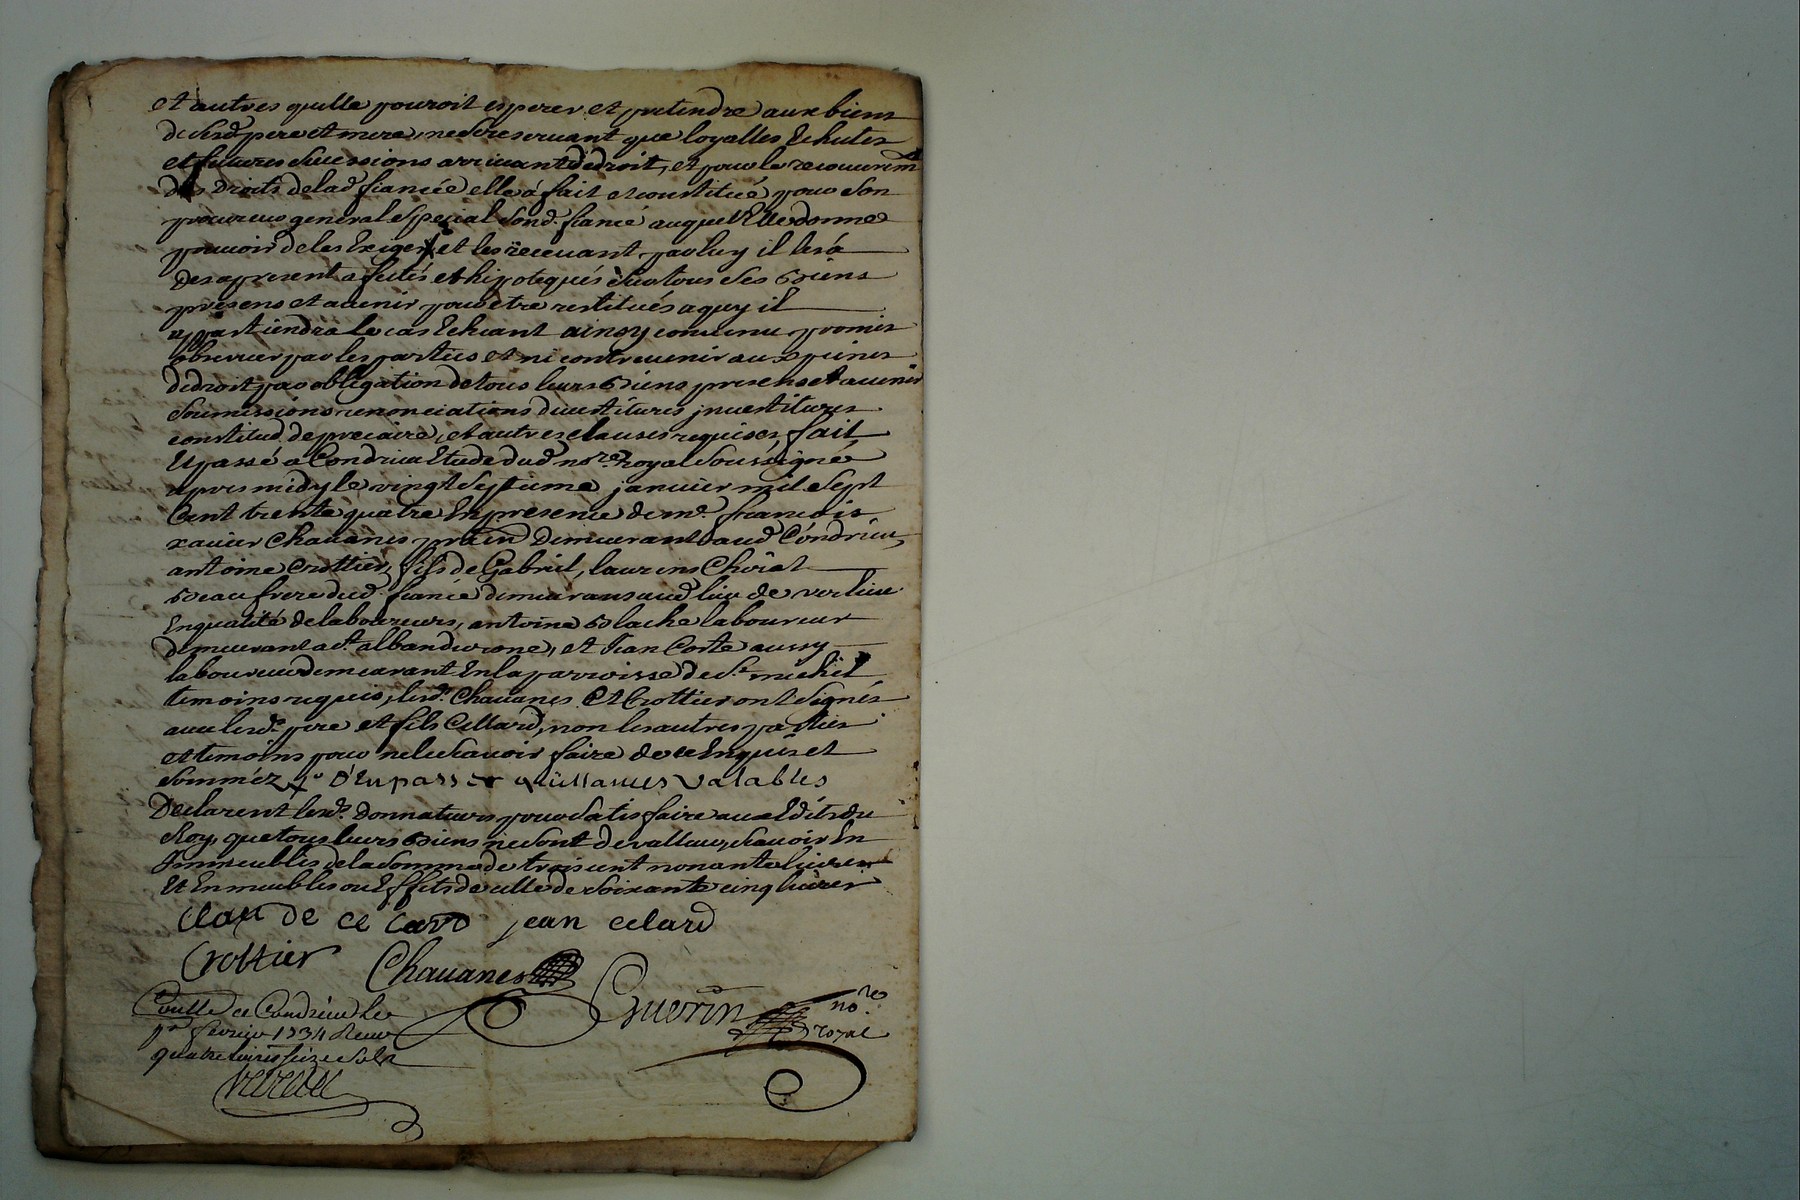 et autres quelle pouroit esperer et pretendre aux biens
de sesd. pere et mere, ne se reservant que loyalles Echutes
et futures sucessions arrivant de droit, et pour le recouvremt
des droits de lad. fiancée elle á fait et constitué pour son
procureur general special sond. fiancé auquel Elle donne
pouvoir de les Exiger et les recevant par luy il les á
des apresent afectés et hipotequés sur tous ses biens
presens et avenir pour etre restitués a quy il
appartiendra le cas Echeant ainsy convenu promis
observer par les parties et ni contrevenir aux peines
de droit par obligation de tous leurs biens presens et avenir
soumissions renonciations devestitures jnvestitures
constitud. de precaire, et autres clauses requises fait
Et passé a Condrieu Etude dud. nore. royal soussigné
apres midy le vingt septieme janvier mil sept
Cent trente quatre En presence de me. francois
xavier Chavanes demeurant aud. Condrieu,
antoine Crottier, fils de Gabriel, laurens
beaufrere dud. fiancé demeurans aud. lieu de verlieu
En qualité de laboureurs, antoine bolache laboureur
demeurant a st. alban et Jean Corte aussy
laboureur demeurant En la parroisse de st. michel
temoins requis, lesd. Chavanes Et Crottier ont signés
avec lesd. pere et fils Cellard, non les autres parties
et temoins pour ne le sçavoir faire de ce Enquis et
sommez D'En passer quittances valables
Declarent lesd. donnateurs pour satisfaire aux Edits du
Roy, que tous leurs biens ne sont de valleur, scavoir En
Immeubles de la somme de trois cent nonante livres
Et En meubles ou Effets de celle de soixante cinq livres
Claude ce lard jean celard
Crottier Chavanes Guerin nore.
royal
Conllé a Condrieu le
pr. fevrier 1734 Receu
quatre livres seize sols